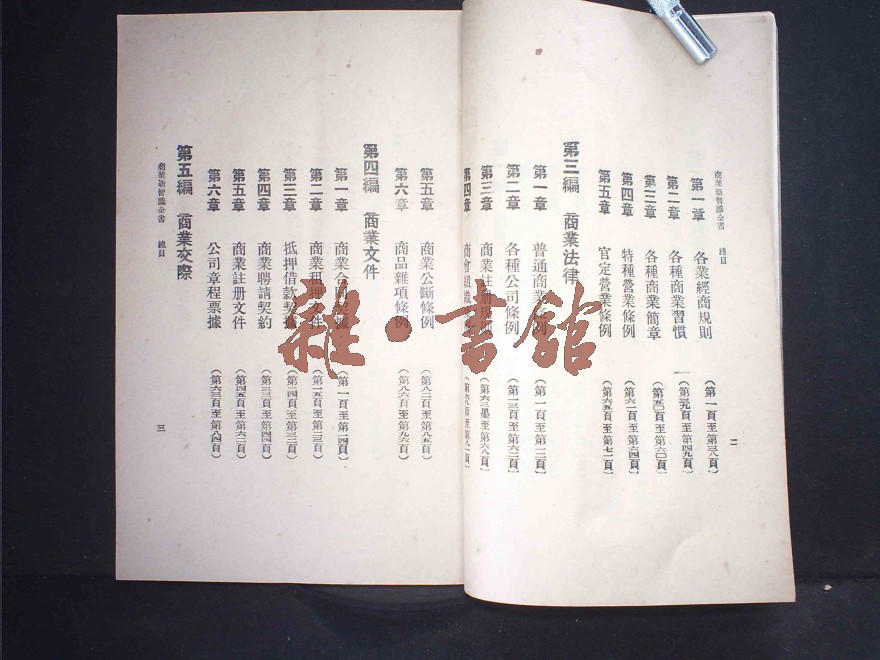 商業新智識全書 總目
二
第一章 各業經商規則 (第一頁至第三八頁)
第二章 各種商業習慣 (第三九頁至第四九頁)
第三章 各種商業簡章 (第五〇頁至第六〇頁)
第四章 特種營業條例 (第六一頁至第六四頁)
第五章 官定營業條例 (第六五頁至第七二頁)
第三編 商業法律
第一章 普通商業條例 (第一頁至第一二頁)
第二章 各種公司條例 (第一三頁至第六二頁)
第三章 商業註册規則 (第六三頁至第六八頁)
第四章 商會組織
第五章 商業公斷條例 (第八二頁至第八五頁)
第六章 商品雜項條例 (第八六頁至第九六頁)
第四編 商業文件
第一章 商業合同契據 (第一頁至第一四頁)
第二章 商業租押文件 (第一五頁至第二三頁)
第三章 抵押借款契據 (第二四頁至第三二頁)
第四章 商業聘請契約 (第三三頁至第四四頁)
第五章 商業註册文件 (第四五頁至第六二頁)
第六章 公司章程票據 (第六三頁至第八四頁)
第五編 商業交際
商業新智識全書 總目
三
雜·書館